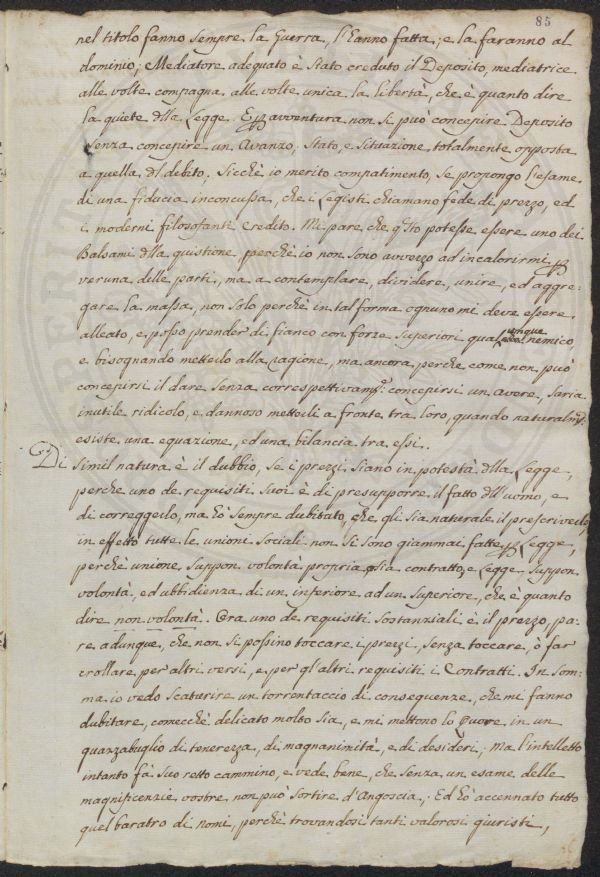 85
nel titolo fanno sempre la Guerra, l'hanno fatta, e la faranno al
dominio; Mediatore adeguato è stato creduto il Deposito, mediatrice
alle volte compagna alle volte unica la libertà, che è quanto dire
la quiete dlla Legge. E p avventura non si può concepire Deposito
senza concepire un Avanzo; stato, e situazione totalmente opposta
a quella dl debito; Sicchè io merito compatimento, se propongo l'esame
di una fiducia inconcussa, che i Legisti chiamano fede di prezzo, ed
i moderni filosofanti Credito. Mi pare, che qsto potesse essere uno dei
Balsami dlla quistione, perchè io non sono avvezzo ad incalorirmi p
veruna delle parti, ma a contemplare, dividere, unire, ed aggre-
gare la massa, non solo perchè in tal forma ognuno mi deve essere
alleato, e posso prender di fianco con forze superiori qualunque nemico
e bisognando metterlo alla ragione, ma ancora, perche come non può
concepirsi il dare senza correspettivamte concepirsi un avere, saria
inutile ridicolo, e dannoso metterli a fronte tra loro, quando naturalmte
esiste una equazione, ed una bilancia tra essi.
Di simil natura è il dubbio, se i prezzi siano in potestà dlla Legge,
perche uno de requisiti suoi è di presupporre il fatto dll'uomo, e
di correggerlo, ma hò sempre dubitato, che gli sia naturale il prescriverlo,
in effetto tutte le unioni sociali non si sono giammai fatte p Legge,
perchè unione, suppon volontà propria osia contratto, e Legge suppon
volontà, ed ubbidienza di un inferiore ad un superiore, che è quanto
dire non volontà. Ora uno de requisiti sostanziali è il prezzo, pa-
re adunque, che non si possino toccare i prezzi, senza toccare, ò far
crollare per altri versi, e per gl'altri requisiti i Contratti. In som-
ma io vedo scaturire un torrentaccio di conseguenze, che mi fanno
dubitare, comecchè delicato molto sia, e mi mettono lo Cuore in un
guazzabuglio di tenerezza, di magnanimità, e di desideri; Ma l'intelletto
intanto fà suo retto cammino, e vede bene, che senza un esame delle
magnificenzie vostre non può sortire d'Angoscia,. Ed hò accennato tutto
quel baratro di nomi, perchè trovandosi tanti valorosi giuristi,